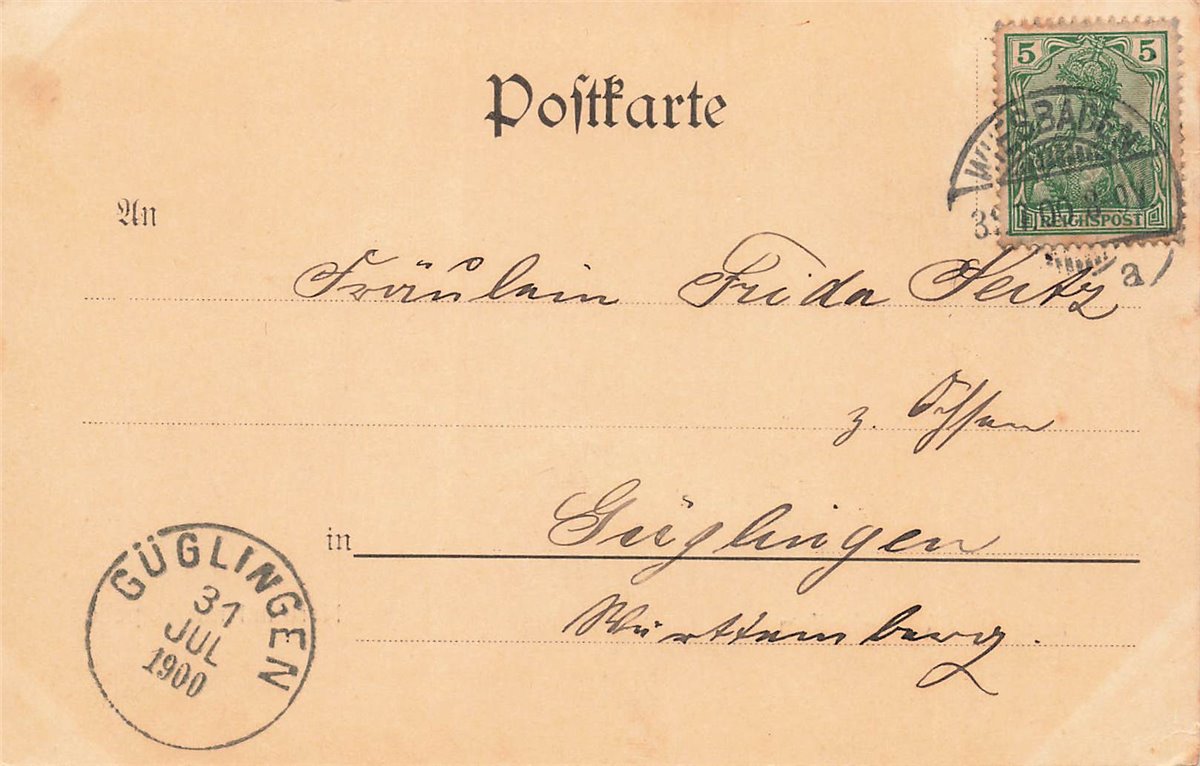 5 5
Postkarte
WIESBADEN
REICHSPOST
a
An
Fräulein Frida Seitz
z. Ochsen
in Güglingen
Württemberg.
GÜGLINGEN
31
JUL
1900